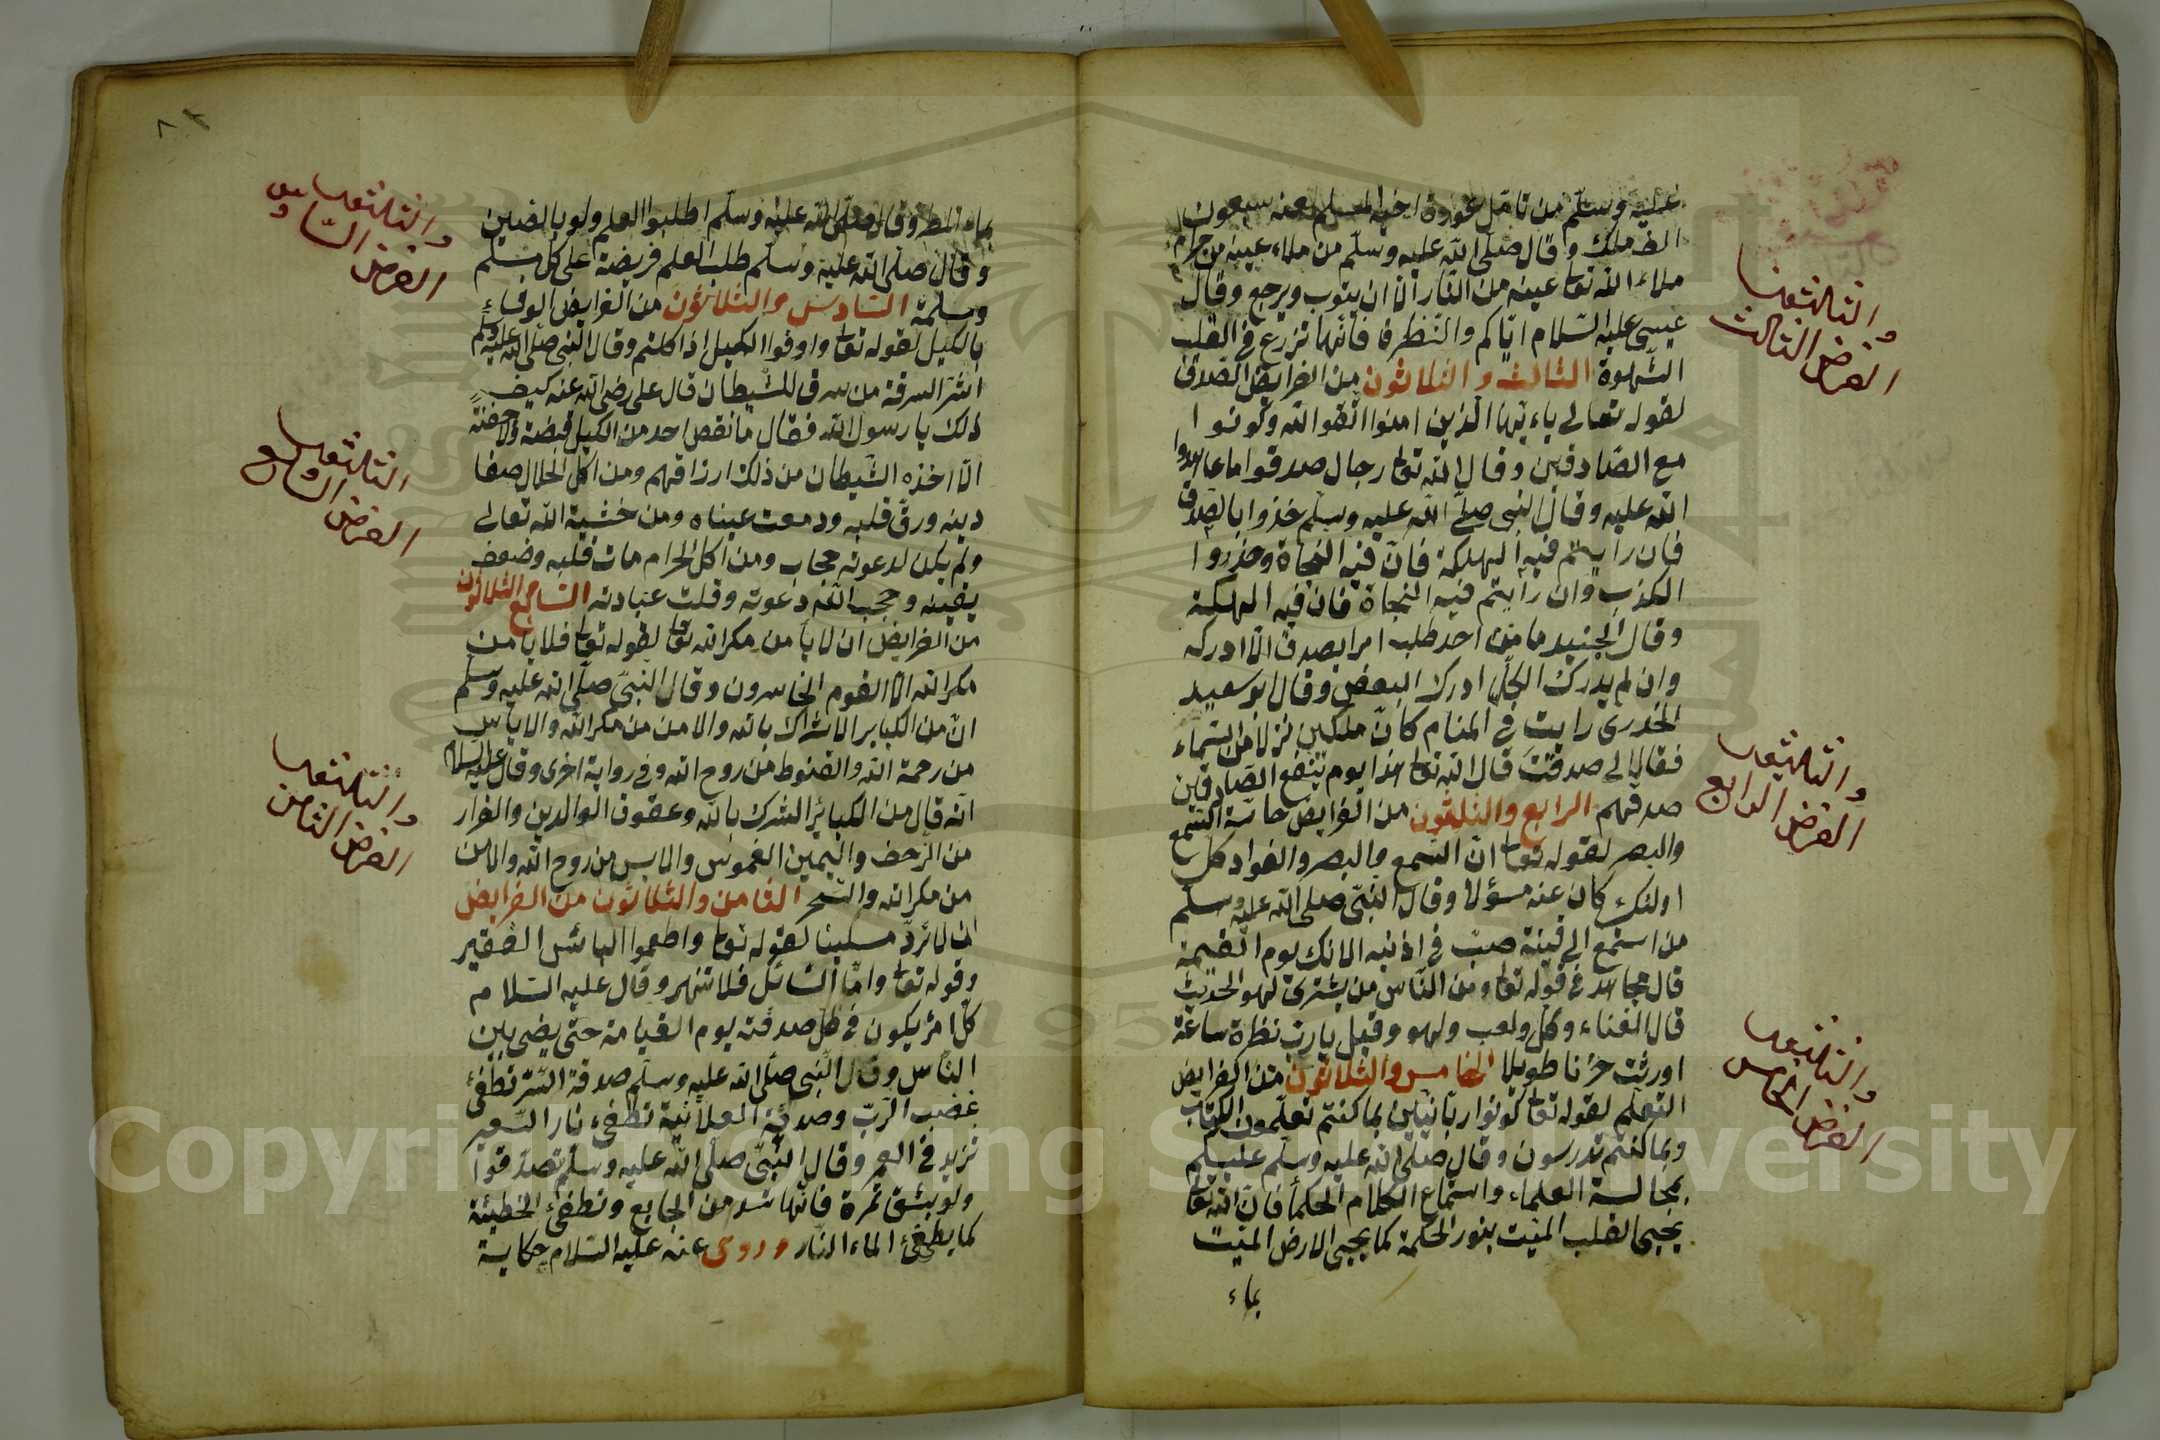 عليه وسلم من تأمل عورة اخيه المسلم لعنه سبعون
الف ملك وقال صلى الله عليه وسلم من ملاء عينه من حرام
ملاء الله تعا عينه من النار الا ان يتوب ويرجع وقال
عيسى عليه السلام اياكم والنظرة فانها تزرع في القلب
الشهوة الثالث والثلاثون من الفرايض الصدق
لقوله تعالى ياءيها الذين امنوا اتقوا الله وكونوا
مع الصادقين وقال الله تعا رجال صدقوا ما عاهدوا
الله عليه وقال النبى صلى الله عليه وسلم خذوا بالصدق
فان رايتم فيه الهلكة فان فيه النجاة وحذروا
الكذب وان رايتم فيه النجاة فان فيه الهلكة
وقال الجنيد ما من احد طلب امرا بصدق الا ادركه
وان لم يدرك الكل ادرك البعض وقال ابو سعيد
الخدرى رايت في المنام كان ملكين نزلا من السماء
فقالا لى صدقت قال الله تعا هذا يوم ينفع الصادقين
صدقهم الرابع والثلثون من الفرايض حاسة السمع
والبصر لقوله تعا ان السمع والبصر والفواد كل
اولئك كان عنه مسؤلا وقال النبى صلى الله عليه وسلم
من استمع الى قينة صب في اذنيه الانك يوم القيمة
قال مجاهد في قوله تعا ومن الناس من يشترى لهو الحديث
قال الغناء وكل ولعب ولهو وقيل يارب نظرة ساعة
اورثت حزنا طويلا الخامس والثلاثون من الفرايض
التعلم لقوله تعا كونوا ربانيين بما كنتم تعلمون الكتاب
وبما كنتم تدرسون وقال صلى الله عليه وسلم عليكم
بمجالسة العلماء واستماع الكلام الحكماء فان الله تعا
يحيى القلب الميت بنور الحكمة كما يحيى الارض الميت
بماء
والثلثين
الفرض الثالث
والثلثين
الفرض الرابع
والثلثين
الفرض الخامس
بماء المطر وقال صلى الله عليه وسلم اطلبوا العلم ولو بالصين
وقال صلى الله عليه وسلم طلب العلم فريضة على كل مسلم
ومسلمة السادس والثلاثون من الفرايض الوفاء
بالكيل لقوله تعا واوفوا الكيل اذا كلتم وقال النبى صلى الله عليه وسلم
اشر السرقة من سرق للشيطان قال على رضى الله عنه كيف
ذلك يا رسول الله فقال ما نقص احد من الكيل قبضة ولا حفنة
الا اخذه الشيطان من ذلك ارزاقهم ومن اكل الحلال صفا
دينه ورق قلبه ودمعت عيناه ومن خشية الله تعالى
ولم يكن لدعوته حجاب ومن اكل الحرام مات قلبه وضعف
يقينه وحجب الله دعوته وقلت عبادته السابع الثلاثون
من الفرايض ان لا يأمن مكر الله تعا لقوله تعا فلا يأمن
مكر الله الا القوم الخاسرون وقال النبى صلى الله عليه وسلم
ان من الكباير الاشراك بالله والامن من مكر الله والاياس
من رحمة الله والقنوط من روح الله وفي رواية اخرى وقال عليه السلام
انه قال من الكبائر الشرك بالله وعقوق الوالدين والفرار
من الزحف واليمين الغموس والايس من روح الله والامن
من مكر الله والسحر الثامن والثلاثون من الفرايض
ان لا ترد مسكينا لقوله تعا واطعموا البائس الفقير
وقوله تعا واما السائل فلا تنهر وقال عليه السلام
كل امرئ يكون في ظل صدقته يوم القيامة حتى يقضى بين
الناس وقال النبى صلى الله عليه وسلم صدقة السر تطفئ
غضب الرب وصدقة العلانية تطفىء نار السعير
تزيد في العمر وقال النبى صلى الله عليه وسلم تصدقوا
ولو بشق تمرة فانها تسد من الجايع وتطفئ الخطيئة
كما يطفئ الماء النار وروى عنه عليه السلام حكاية
والثلثين
الفرض السادس
والثلثين
الفرض السابع
والثلثين
الفرض الثامن
Copyright © King Saud University